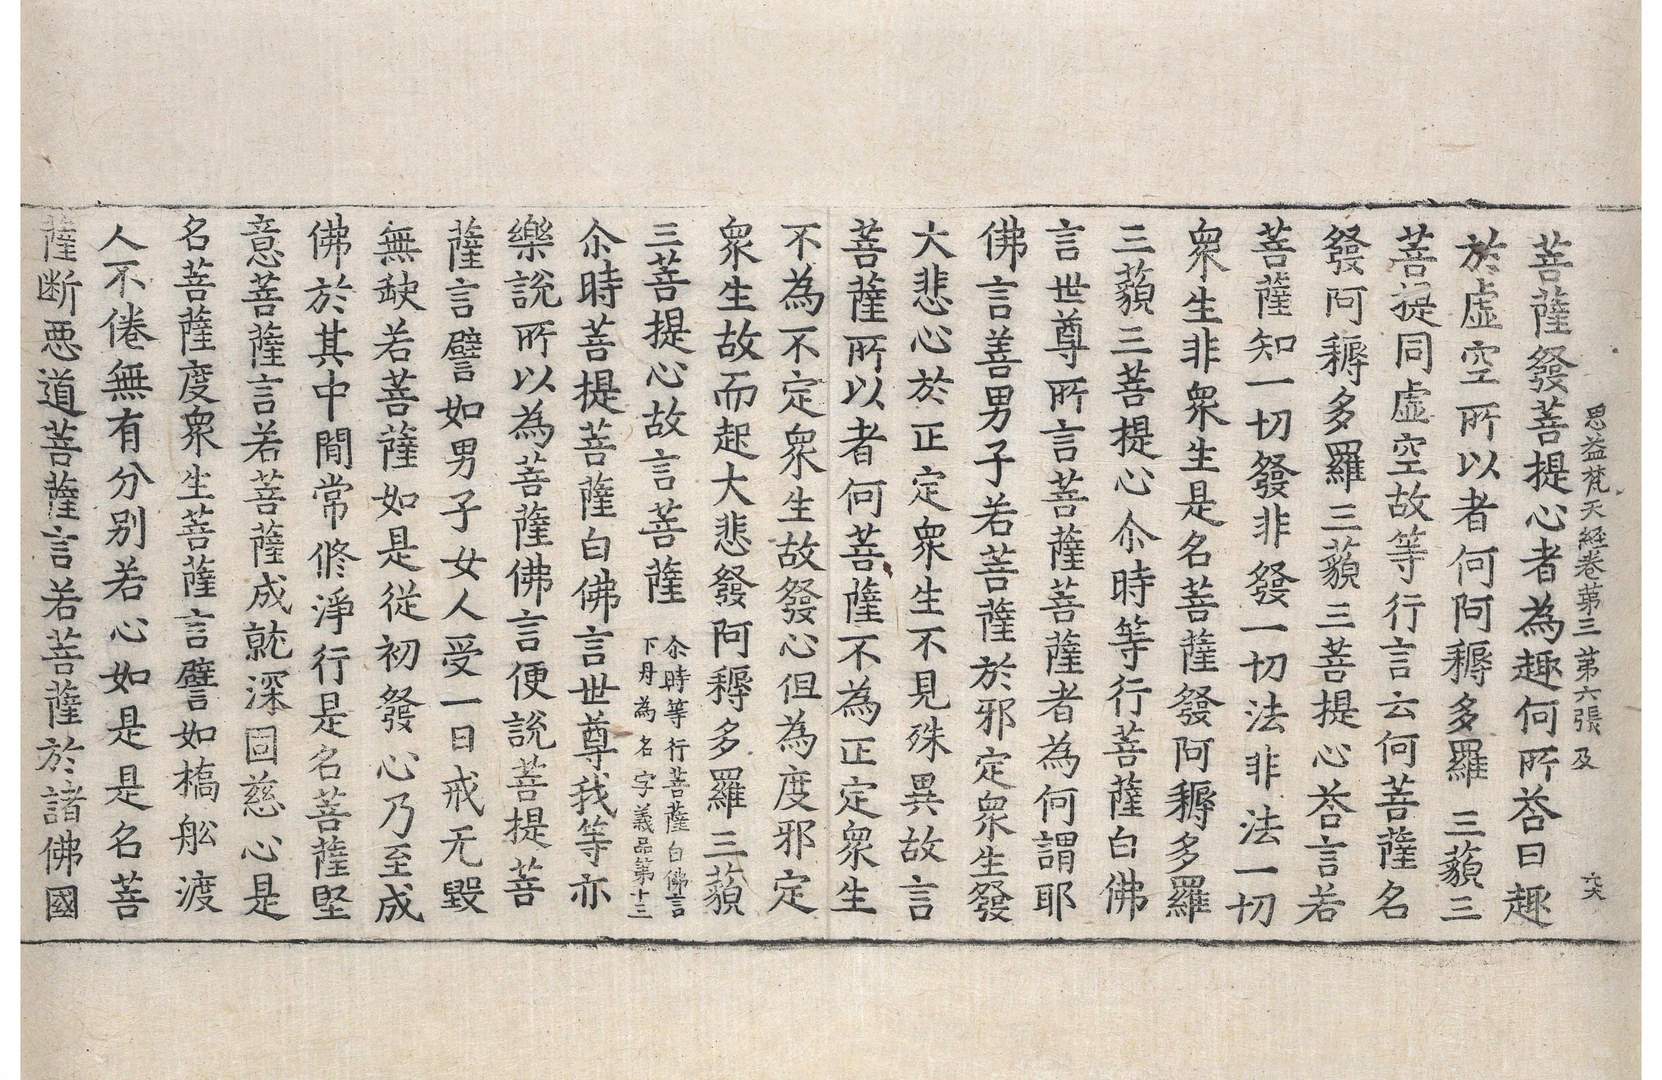 思益梵天經卷第三 第六張 及
六大
菩薩發菩提心者為趣何所荅曰趣
於虛空所以者何阿耨多羅三藐三
菩提同虛空故等行言云何菩薩名
發阿耨多羅三藐三菩提心荅言若
菩薩知一切發非發一切法非法一切
衆生非衆生是名菩薩發阿耨多羅
三藐三菩提心尒時等行菩薩白佛
言世尊所言菩薩菩薩者為何謂耶
佛言善男子若菩薩於邪定衆生發
大悲心於正定衆生不見殊異故言
菩薩所以者何菩薩不為正定衆生
不為不定衆生故發心但為度邪定
衆生故而起大悲發阿耨多羅三藐
三菩提心故言菩薩
尒時等行菩薩白佛言
下丹為名字義品第十三
尒時菩提菩薩白佛言世尊我等亦
樂說所以為菩薩佛言便說菩提菩
薩言譬如男子女人受一日戒无毀
無缺若菩薩如是從初發心乃至成
佛於其中間常修淨行是名菩薩堅
意菩薩言若菩薩成就深固慈心是
名菩薩度衆生菩薩言譬如橋舩渡
人不倦無有分别若心如是是名菩
薩斷惡道菩薩言若菩薩於諸佛國